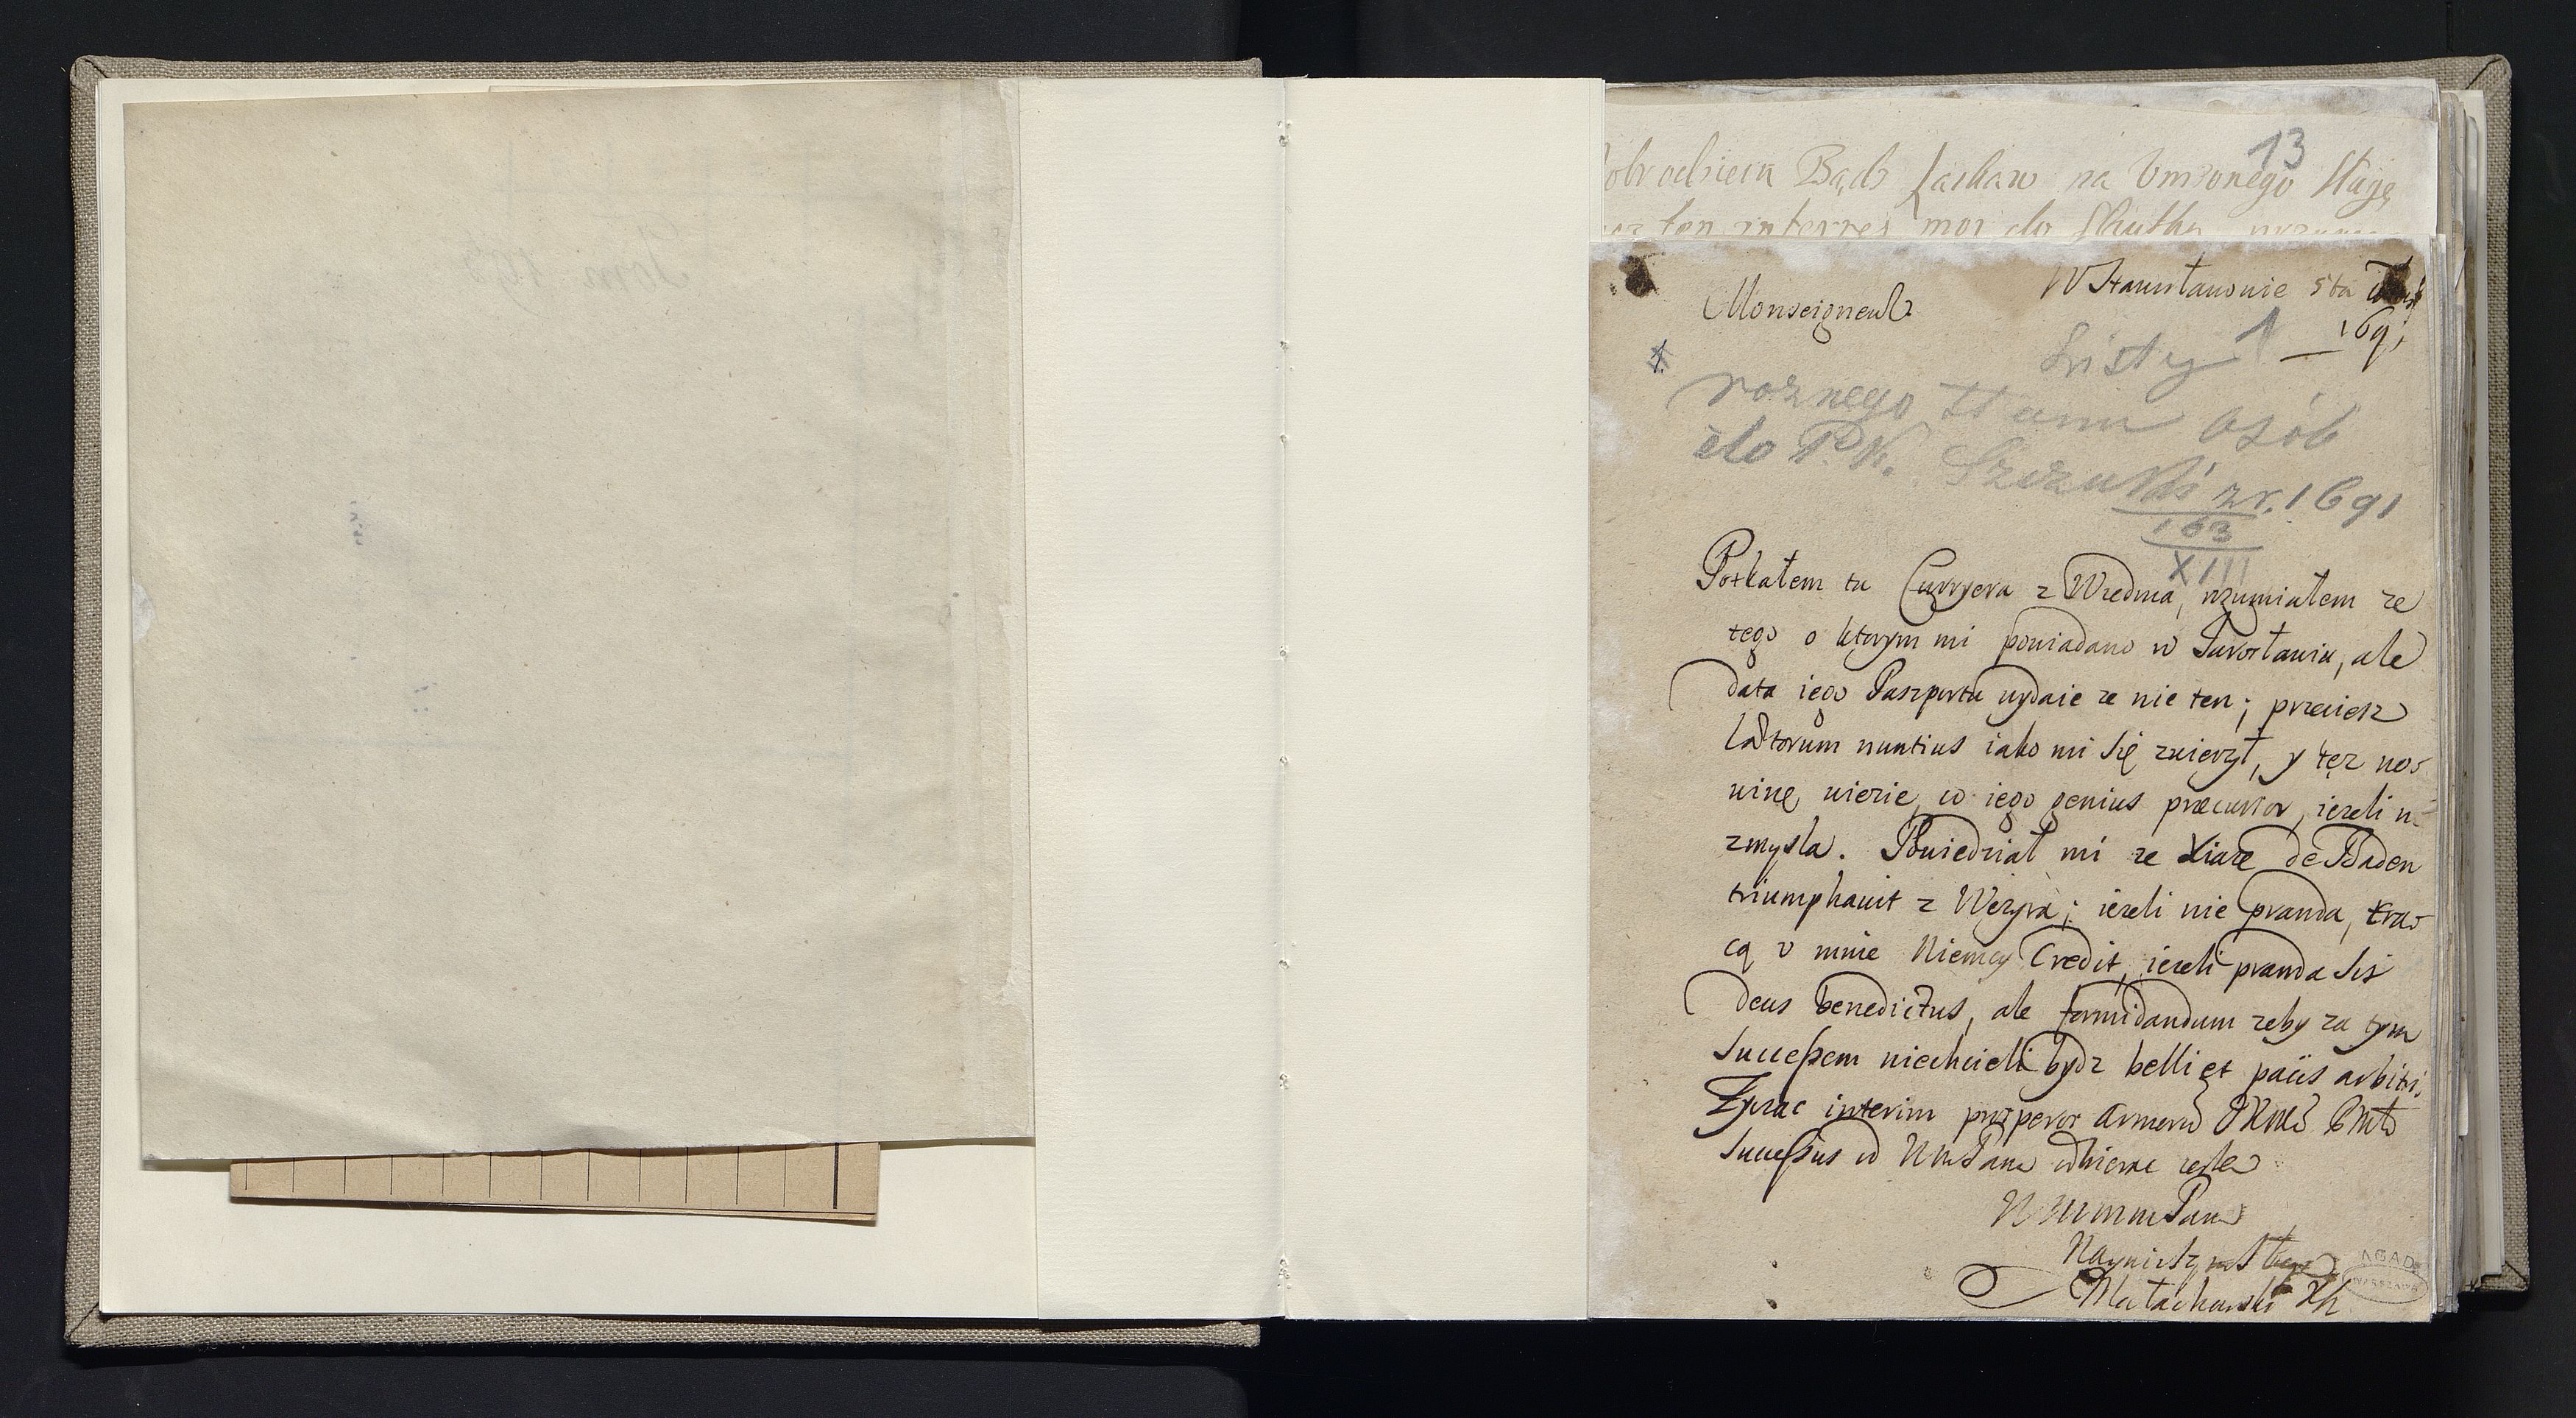 13
Bądź łaskaw na
ten interres moi do
Monseigneur
W Stanisławowie 5ta
1691
Listy 1
roznego stanu osób
do P. K. Szczuki z r. 1691
163
XIII
Potkałem tu Curryera z Wiednia, rozumiałem ze
tego o ktorym mi powiadano w Jarosławiu, ale
data iego Paszportu wydaie ze nie ten; przeciesz
lætorum nuntius iako mi się zwierzył, y tęz no-
winę wiezie, co iego genius præcursor, iezeli n
zmysla. Powiedział mi ze Xiaze de Baden
triumphavit z Wezyra; iezeli nie prawda, tra-
cą v mnie Niemcy Credit, iezeli prawda sis
Deus benedictus, ale formidandum zeby za tym
Successem niechcieli bydz belli et pacis arbitri.
Zycząc interim prosperos armorum
Successus
Małachowski
AGAD
WARSZAWA